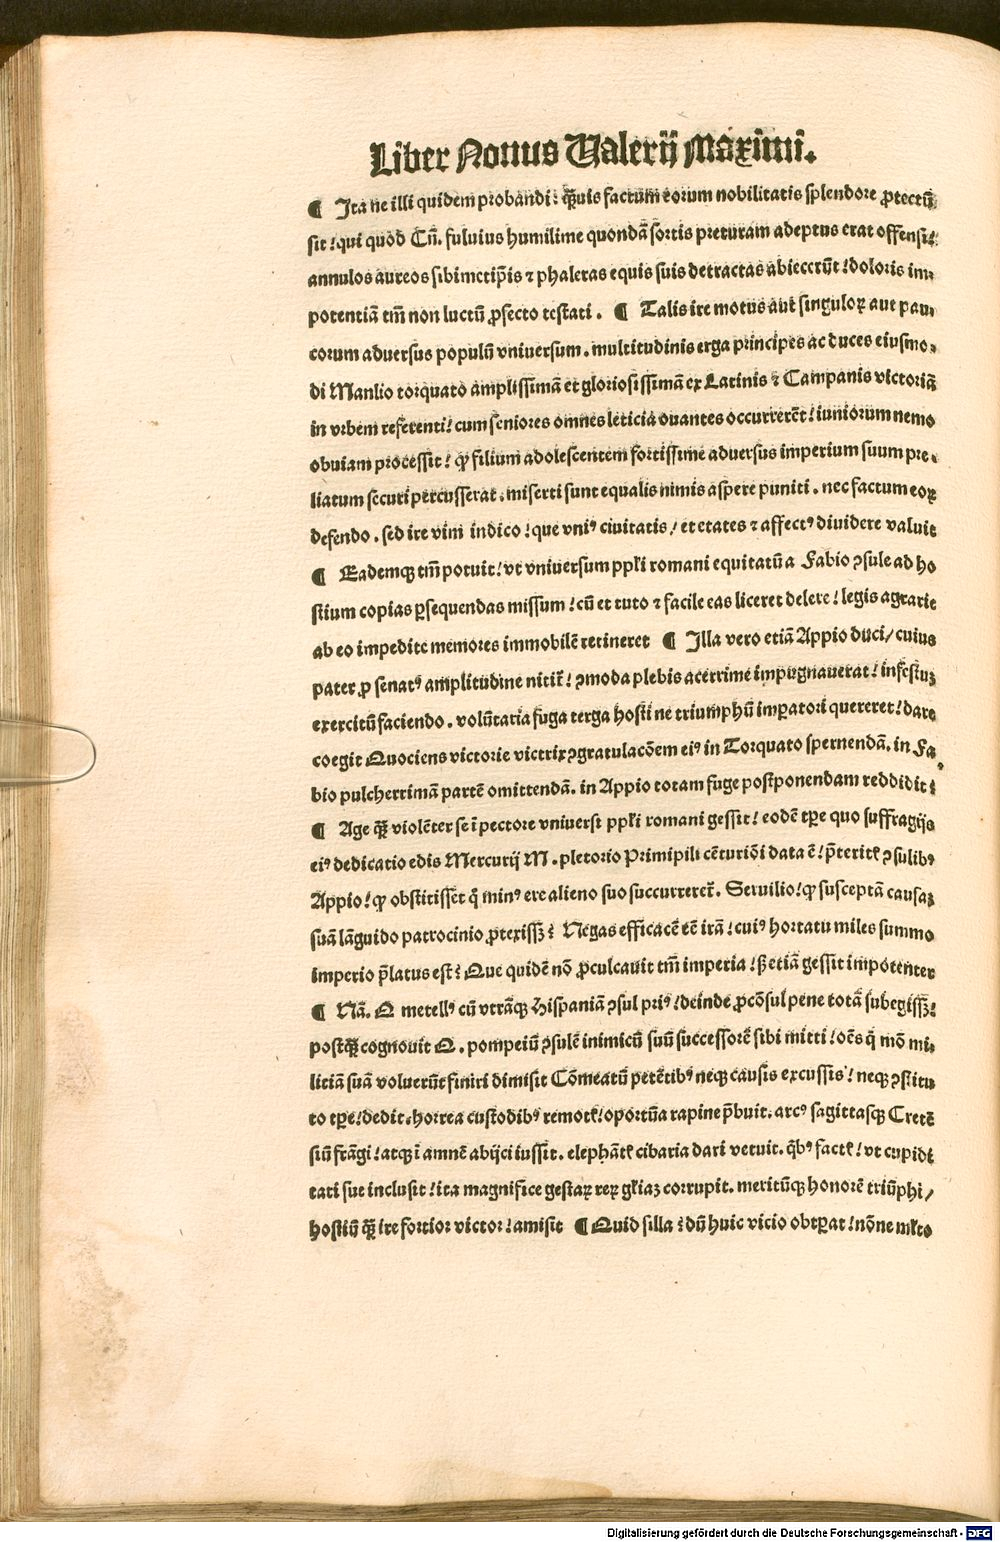 Liber Nonus Ualerij Maximi.
¶ Ita ne illi quidem probandi: q̄uis factum eorum nobilitatis splendore ꝓtectū
sit: qui quod Cn̄. fuluius humilime quondā sortis preturam adeptus erat offensi:
annulos aureos sibimetip̄is ⁊ phaleras equis suis detractas abiecerūt: doloris im-
potentiā tm̄ non luctū ꝓfecto testati. ¶ Talis ire motus aut singuloꝝ aut pau-
corum aduersus populū vniuersum. multitudinis erga principes ac duces eiusmo-
di Manlio torquato amplissimā et gloriosissimā ex Latinis ⁊ Campanis victoriā
in vrbem referenti: cum seniores omnes leticia ouantes occurrerēt: iuniorum nemo
obuiam processit: ꝙ filium adolescentem fortissime aduersus imperium suum pre-
liatum securi percusserat. miserti sunt equalis nimis aspere puniti. nec factum eoꝝ
defendo. sed ire vim indico: que vniꝰ ciuitatis/ et etates ⁊ affectꝰ diuidere valuit
¶ Eademqꝫ tm̄ potuit: vt vniuersum ppl̄i romani equitatū a Fabio ꝯsule ad ho
stium copias ꝑsequendas missum: cū et tuto ⁊ facile eas liceret delere: legis agrarie
ab eo impedite memores immobilē retineret ¶ Illa vero etiā Appio duci/ cuius
pater ꝓ senatꝰ amplitudine nitit̄: ꝯmoda plebis acerrime impugnauerat: infestuꝫ
exercitū faciendo. volūtaria fuga terga hosti ne triumphū imꝑatori quereret: dare
coegit Quociens victorie victrix ꝯgratulacōem eiꝰ in Torquato spernendā. in Fa
bio pulcherrimā partē omittendā. in Appio totam fuge postponendam reddidit:
¶ Age q̄ꝫ violēter se ī pectore vniuersi ppl̄i romani gessit: eodē tꝑe quo suffragijs
eiꝰ dedicatio edis Mercurij M. pletorio Primipili cēturiōi data ē: p̄teritꝭ ꝯsulibꝰ
Appio: ꝙ obstitisset q̄ minꝰ ere alieno suo succurreret̄. Seruilio: ꝙ susceptā causaꝫ
suā lāguido patrocinio ꝓtexissꝫ: Negas efficacē eē irā: cuiꝰ hortatu miles summo
imperio p̄latus est: Que quidē nō ꝓculcauit tm̄ imperia: ß etiā gessit impotenter
¶ Nā. Q metellꝰ cū vtrāqꝫ Hispaniā ꝯsul priꝰ: deinde ꝓcōsul pene totā subegissꝫ:
postq̄ꝫ cognouit Q. pompeiū ꝯsulē inimicū suū successorē sibi mitti: oēs q̄ mō mi-
litiā suā voluerūt finiri dimisit Cōmeatū petētibꝰ neqꝫ causis excussis: neqꝫ ꝯstitu
to tꝑe: dedit. horrea custodibꝰ remotꝭ: oportūa rapine p̄buit. arcꝰ sagittasqꝫ Cretē
siū frāgi: atqꝫ ī amnē abijci iussit. elephātꝭ cibaria dari vetuit. q̄bꝰ factꝭ: vt cupidi
tati sue inclusit: ita magnifice gestaꝝ reꝝ gl̄iaꝫ corrupit. meritūqꝫ honorē triūphi/
hostiū q̄ꝫ ire fortior victor: amisit ¶ Quid silla: dū huic vicio obtꝑat: nōne ml̄to
Digitalisierung gefördert durch die Deutsche Forschungsgemeinschaft - DFG